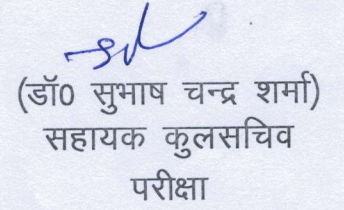 (डॉ0 सुभाष चन्द्र शर्मा)
सहायक कुलसचिव
परीक्षा